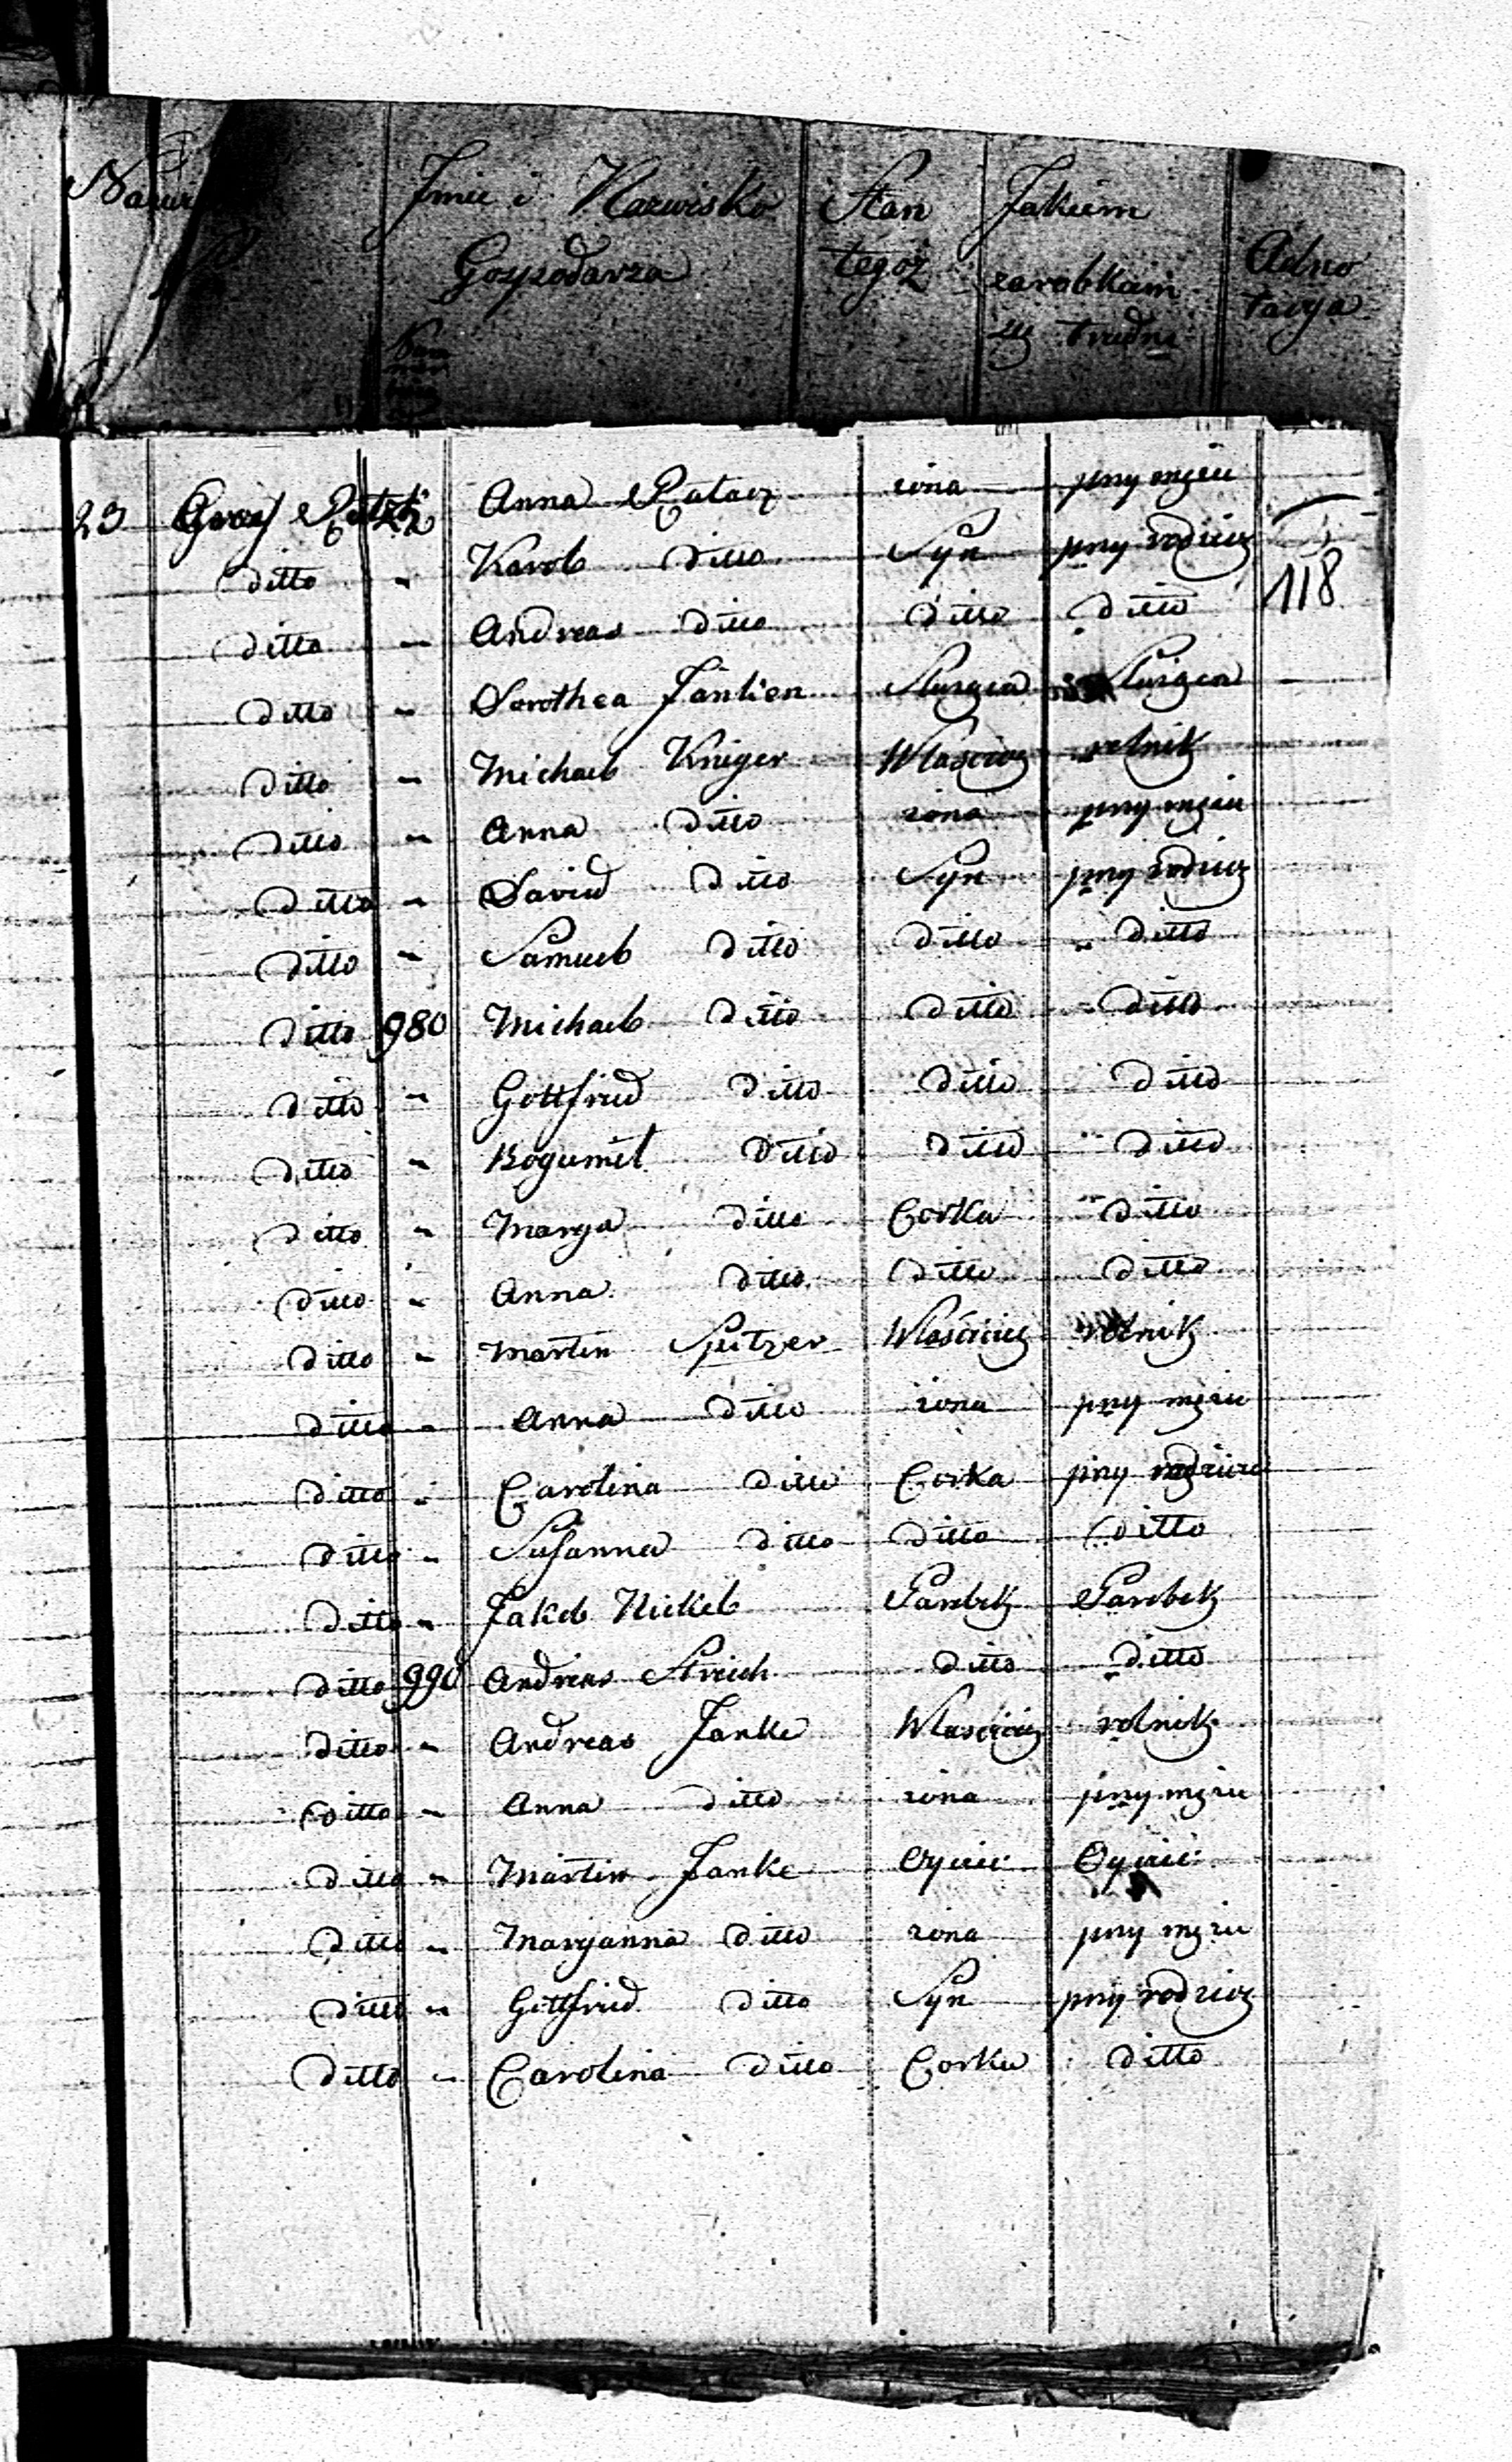 Imie i Nazwisko Gospodarza Stan tegoż Jakiem zarobkiem się trudni Adnotacya
23 Anna Ratacz żona przy mężu
ditto " Karol ditto Syn przy rodzicz 118
ditto " Andreas ditto ditto ditto
ditto " Dorothea Sługa Sługa
ditto " Michael Kriger Własciciel rolnik
ditto " Anna ditto żona przy mężu
ditto " David ditto Syn przy rodzicz
ditto " Samuel ditto ditto " ditto
ditto 980 Michael ditto ditto " ditto
ditto " Gottfried ditto ditto ditto
ditto " Bogumił ditto ditto " ditto
ditto " Marya ditto Corka " ditto
ditto " Anna ditto ditto ditto
ditto " Martin Spitzer Właściciel rolnik
ditto " Anna ditto żona przy mężu
ditto " Carolina ditto Corka przy
ditto " Susanna ditto ditto ditto
ditto " Jakob Nickel Parobek Parobek
ditto 990 Andreas Streich ditto ditto
ditto " Andreas Janke Własciciel rolnik
ditto " Anna ditto żona przy mężu
ditto " Martin Janke Oyciec Oyciec
ditto " Maryanna ditto żona przy mężu
ditto " Gottfried ditto Syn przy rodzicz
ditto " Carolina ditto Corka ditto